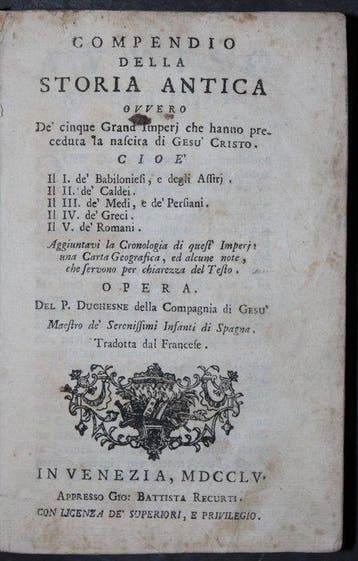 COMPENDIO
DELLA
STORIA ANTICA
OVVERO
De' cinque Grand' Imperj che hanno pre-
ceduta la nascita di GESU' CRISTO.
CIOE'
Il I. de' Babiloniesi, e degli Assirj.
Il II. de' Caldei.
Il III. de' Medi, e de' Persiani.
Il IV. de' Greci.
Il V. de' Romani.
Aggiuntavi la Cronologia di quest' Imperj:
una Carta Geografica, ed alcune note,
che servono per chiarezza del Testo.
OPERA.
DEL P. DUCHESNE della Compagnia di GESU'
Maestro de' Serenissimi Infanti di Spagna.
Tradotta dal Francese.
IN VENEZIA, MDCCLV.
APPRESSO GIO: BATTISTA RECURTI.
CON LICENZA DE' SUPERIORI, E PRIVILEGIO.